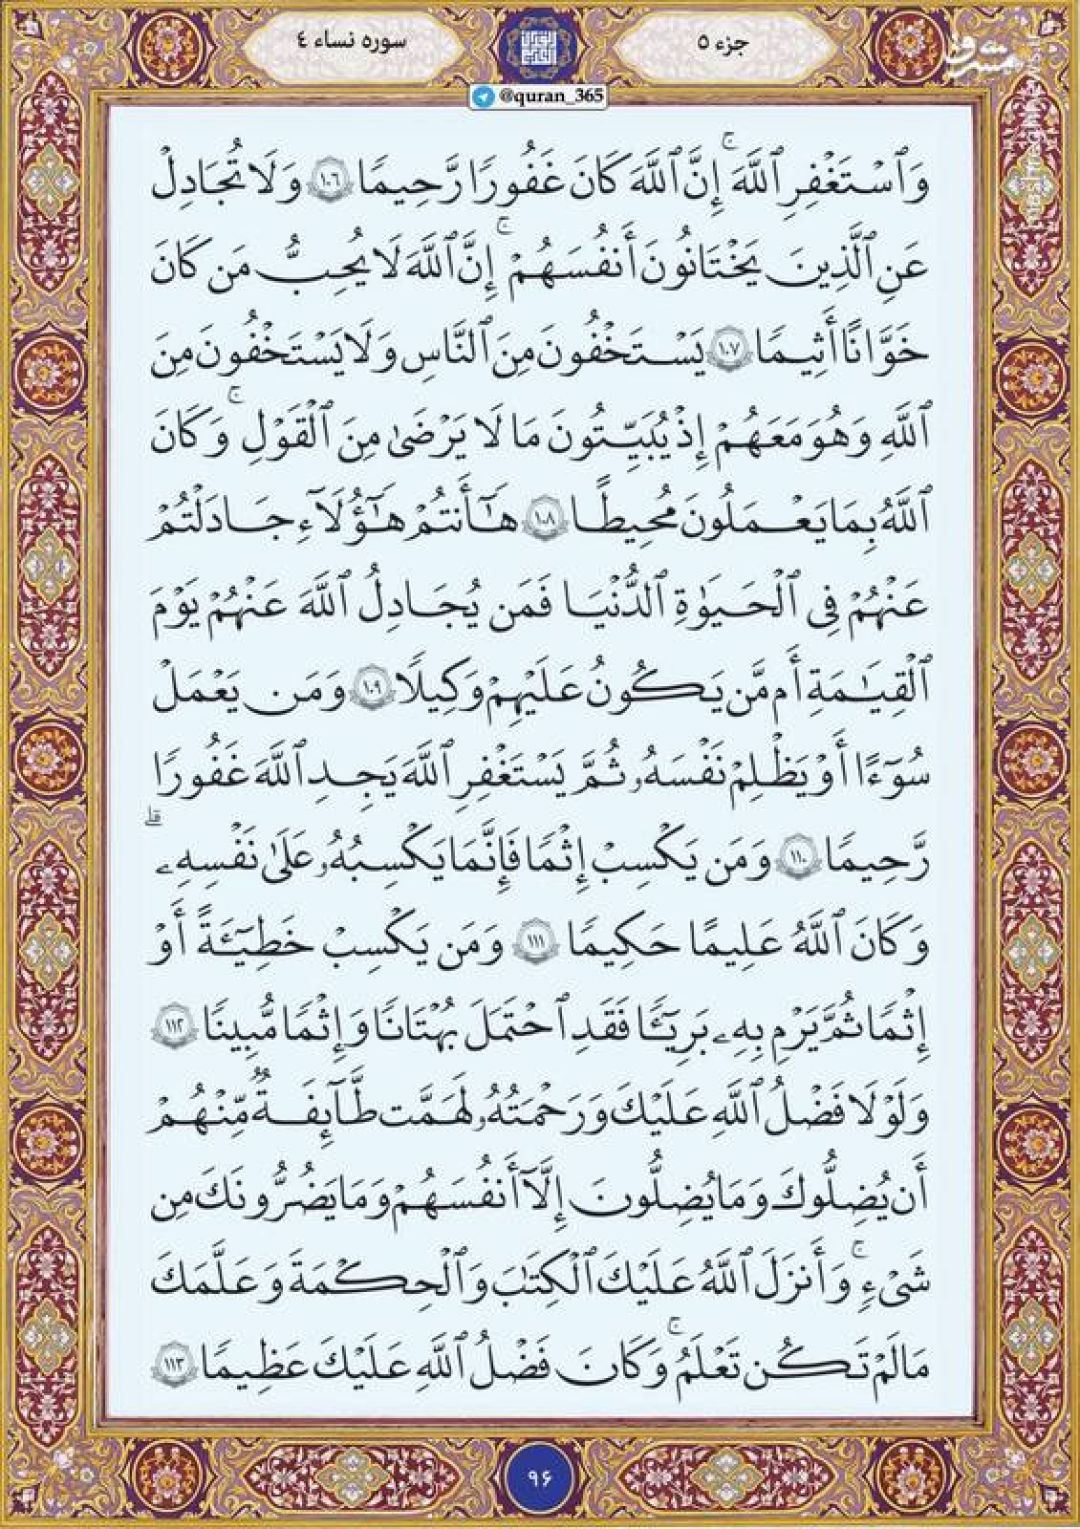 سوره نساء ٤
جزء ٥
@quran_365
مشرق
mashreghnews
وَٱسْتَغْفِرِ ٱللَّهَ ۚ إِنَّ ٱللَّهَ كَانَ غَفُورًا رَّحِيمًا ١٠٦ وَلَا تُجَادِلْ
عَنِ ٱلَّذِينَ يَخْتَانُونَ أَنفُسَهُمْ ۚ إِنَّ ٱللَّهَ لَا يُحِبُّ مَن كَانَ
خَوَّانًا أَثِيمًا ١٠٧ يَسْتَخْفُونَ مِنَ ٱلنَّاسِ وَلَا يَسْتَخْفُونَ مِنَ
ٱللَّهِ وَهُوَ مَعَهُمْ إِذْ يُبَيِّتُونَ مَا لَا يَرْضَىٰ مِنَ ٱلْقَوْلِ ۚ وَكَانَ
ٱللَّهُ بِمَا يَعْمَلُونَ مُحِيطًا ١٠٨ هَـٰٓأَنتُمْ هَـٰٓؤُلَآءِ جَادَلْتُمْ
عَنْهُمْ فِى ٱلْحَيَوٰةِ ٱلدُّنْيَا فَمَن يُجَادِلُ ٱللَّهَ عَنْهُمْ يَوْمَ
ٱلْقِيَـٰمَةِ أَم مَّن يَكُونُ عَلَيْهِمْ وَكِيلًا ١٠٩ وَمَن يَعْمَلْ
سُوٓءًا أَوْ يَظْلِمْ نَفْسَهُۥ ثُمَّ يَسْتَغْفِرِ ٱللَّهَ يَجِدِ ٱللَّهَ غَفُورًا
رَّحِيمًا ١١٠ وَمَن يَكْسِبْ إِثْمًا فَإِنَّمَا يَكْسِبُهُۥ عَلَىٰ نَفْسِهِۦ ۚ
وَكَانَ ٱللَّهُ عَلِيمًا حَكِيمًا ١١١ وَمَن يَكْسِبْ خَطِيٓـَٔةً أَوْ
إِثْمًا ثُمَّ يَرْمِ بِهِۦ بَرِيٓـًٔا فَقَدِ ٱحْتَمَلَ بُهْتَانًا وَإِثْمًا مُّبِينًا ١١٢
وَلَوْلَا فَضْلُ ٱللَّهِ عَلَيْكَ وَرَحْمَتُهُۥ لَهَمَّت طَّآئِفَةٌ مِّنْهُمْ
أَن يُضِلُّوكَ وَمَا يُضِلُّونَ إِلَّآ أَنفُسَهُمْ وَمَا يَضُرُّونَكَ مِن
شَىْءٍ ۚ وَأَنزَلَ ٱللَّهُ عَلَيْكَ ٱلْكِتَـٰبَ وَٱلْحِكْمَةَ وَعَلَّمَكَ
مَا لَمْ تَكُن تَعْلَمُ ۚ وَكَانَ فَضْلُ ٱللَّهِ عَلَيْكَ عَظِيمًا ١١٣
٩۶